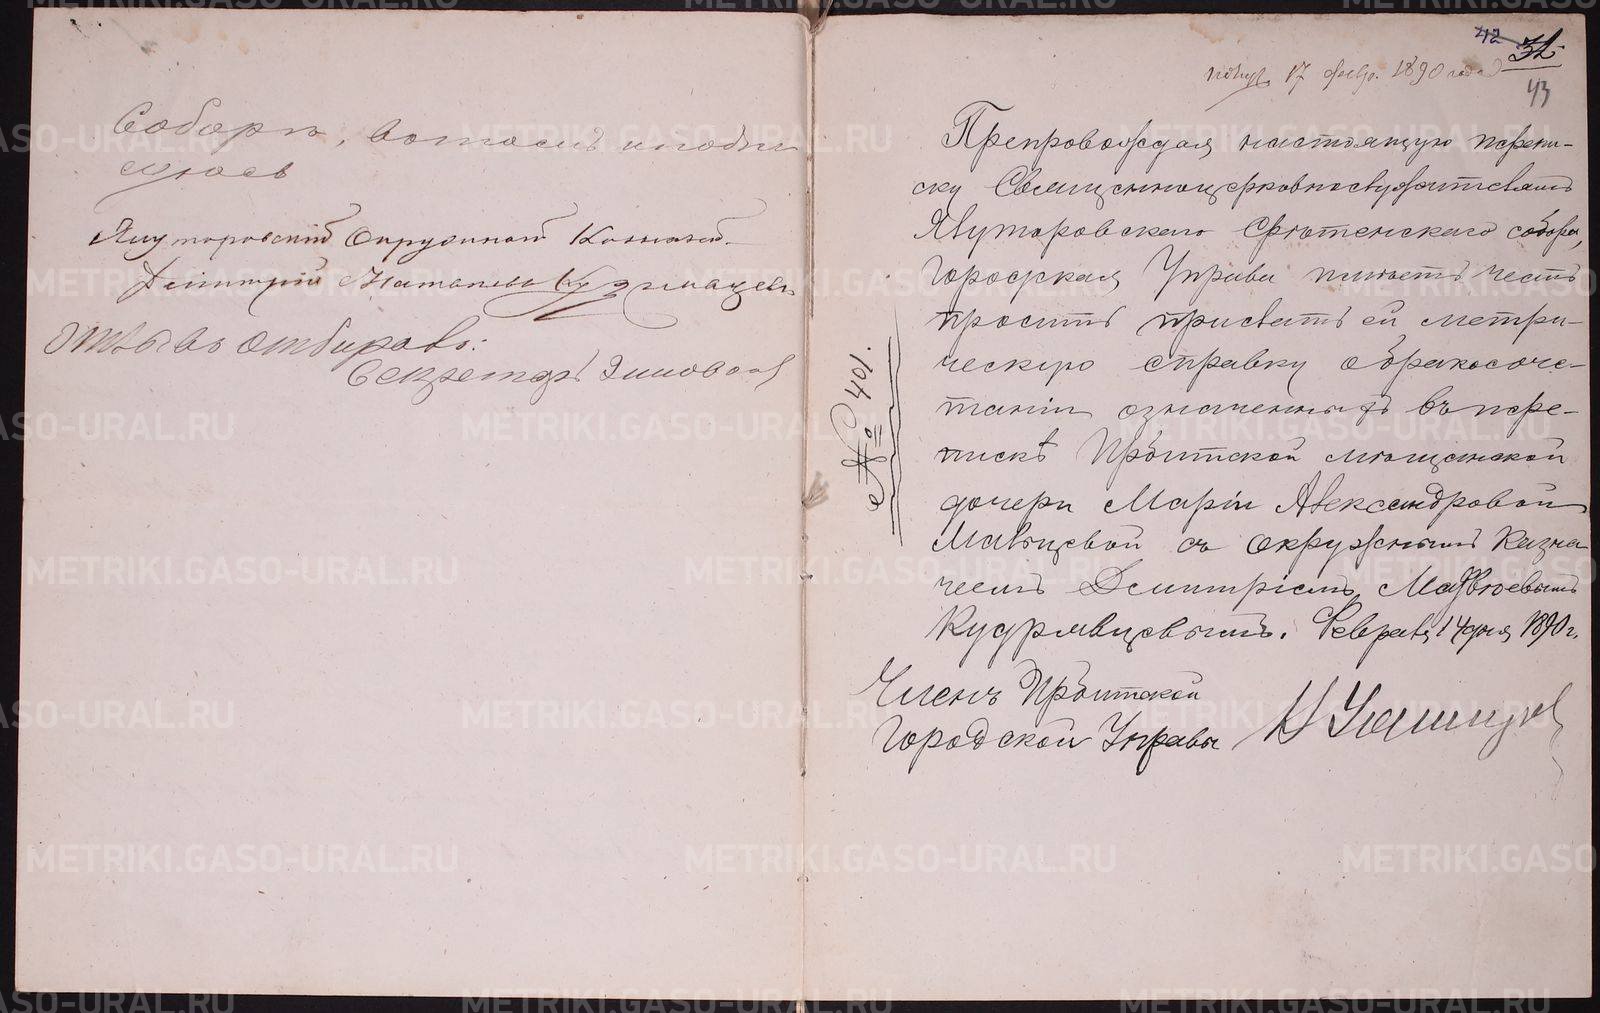 Соборѣ, въ томъ и подпи-
суюсь
Ялуторовскій Окружной Казначей
Дмитрій Матвѣевъ Кудрявцевъ
Отзывъ отбиралъ:
Секретарь
42 32
43
получ. 17 февр. 1890 года
Препровождая настоящую перепи-
ску Священноцерковнослужителямъ
Ялуторовскаго Срѣтенскаго собора,
Городская Управа имѣетъ честь
проситъ прислать ей метри-
ческую справку о бракосоче-
таніи означенныхъ въ пере-
пискѣ Ирбитской мѣщанской
дочери Маріи Александровой
Мальцевой съ окружнымъ Казна-
чеемъ Дмитріемъ Матвѣевымъ
Кудрявцевымъ. Февраля 14 дня 1890 г.
№ 401.
Членъ Ирбитской
Городской Управы